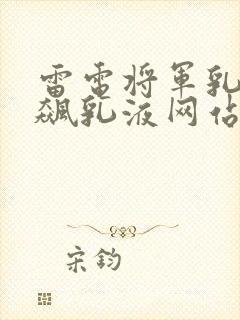 雷電将軍乳
飆乳液网佔
宋鈞